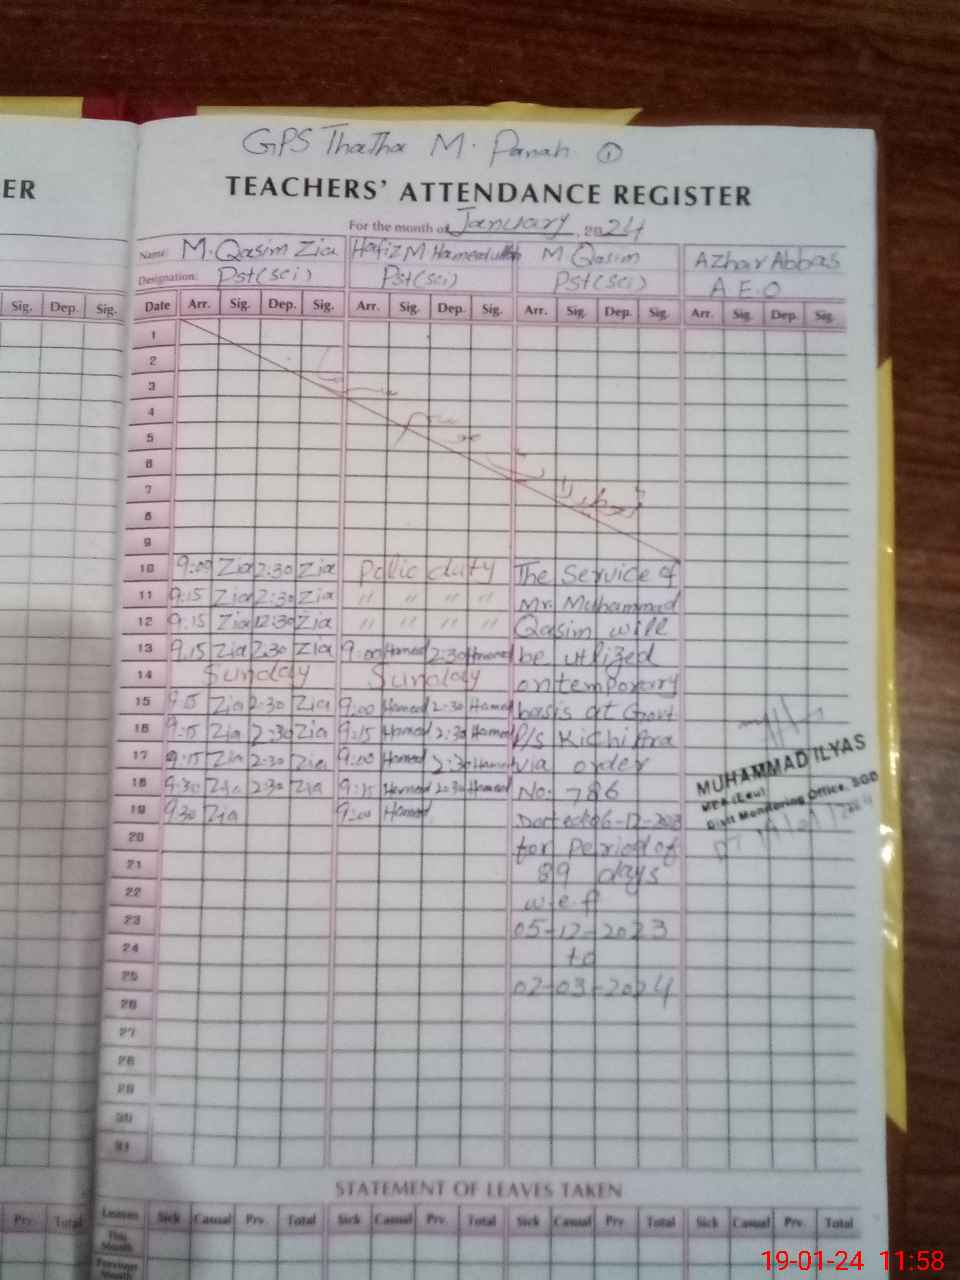 GPS ThaTha M. Panah ①
ER
TEACHERS' ATTENDANCE REGISTER
For the month of January, 2024
Name: M. Qasim Zia Hafiz M Hameedullah M Qasim Azhar Abbas
Designation: Pst(sci) Pst(sci) Pst(sci) A.E.O
Sig. Dep. Sig. Date Arr. Sig. Dep. Sig. Arr. Sig. Dep. Sig. Arr. Sig. Dep. Sig. Arr. Sig. Dep. Sig.
1
2
3
4
5
6
7
8
9
10 9:09 Zia 2:30 Zia Polic duty The Service of
11 9:15 Zia 2:30 Zia " " " " Mr. Muhammad
12 9:15 Zia 12:30 Zia " " " " Qasim will
13 9.15 Zia 2:30 Zia 9:00 Hamed 2:30 Hamed be utlized
14 Sunday Sunday on temporary
15 9:15 Zia 2:30 Zia 9:00 Hamed 2:30 Hamed basis at Govt
16 9:15 Zia 2:30 Zia 9:15 Hamed 2:30 Hamed P/S Kichi Ara
17 9:15 Zia 2:30 Zia 9:00 Hamed 2:30 Hamed via order
18 9:30 Zia 2:30 Zia 9:15 Hamed 2:30 Hamed No. 786
19 9:30 Zia 9:00 Hamed Dated 06-12-2023
20 for Period of
21 89 days
22 w.e.f
23 05-12-2023
24 to
25 02-03-2024
26
27
28
29
30
31
MUHAMMAD ILYAS
MEA (Lev)
Distt Monitoring Office, SGD
DT 19/01/2024
STATEMENT OF LEAVES TAKEN
Prv. Total Leaves Sick Casual Prv. Total Sick Casual Prv. Total Sick Casual Prv. Total Sick Casual Prv. Total
This Month
Previous Month
19-01-24 11:58